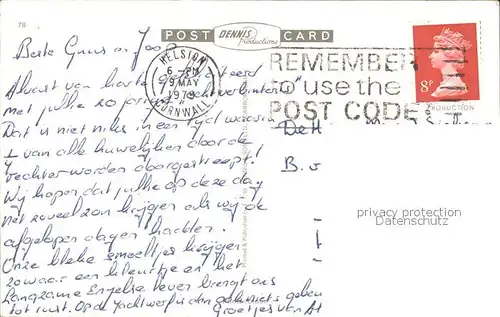 78
POST DENNIS Productions CARD
HELSTON
6 - PM
9 MAY
1979
CORNWALL
REMEMBER
to use the
POST CODE
8P
Beste Guus en Joop
Alvast van harte gefeliciteerd
met jullie 20 jarige echtverbintenis
Dat is niet niks in een tijd waarin
1 van alle huwelijken door de
rechter worden doorgestreept!
Wij hopen dat jullie op deze dag
net zoveel zon krijgen als wij de
afgelopen dagen hadden.
Onze bleke smoeltjes krijgen
zowaar een kleurtje en het
Langzame Engelse leven brengt ons
tot rust. Op de
Groetjes van
De H
B. v
privacy protection
Datenschutz